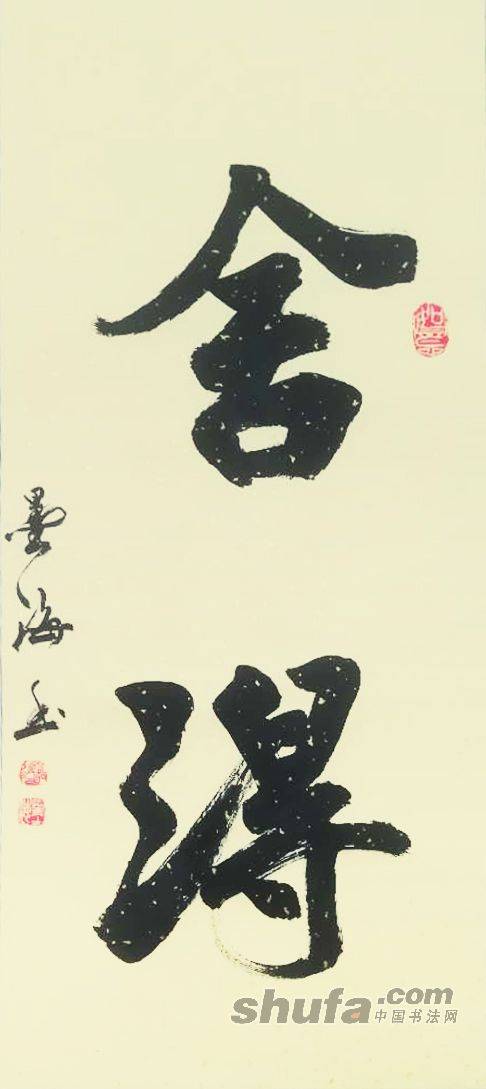 舍得
墨海
shufa.com
中国书法网